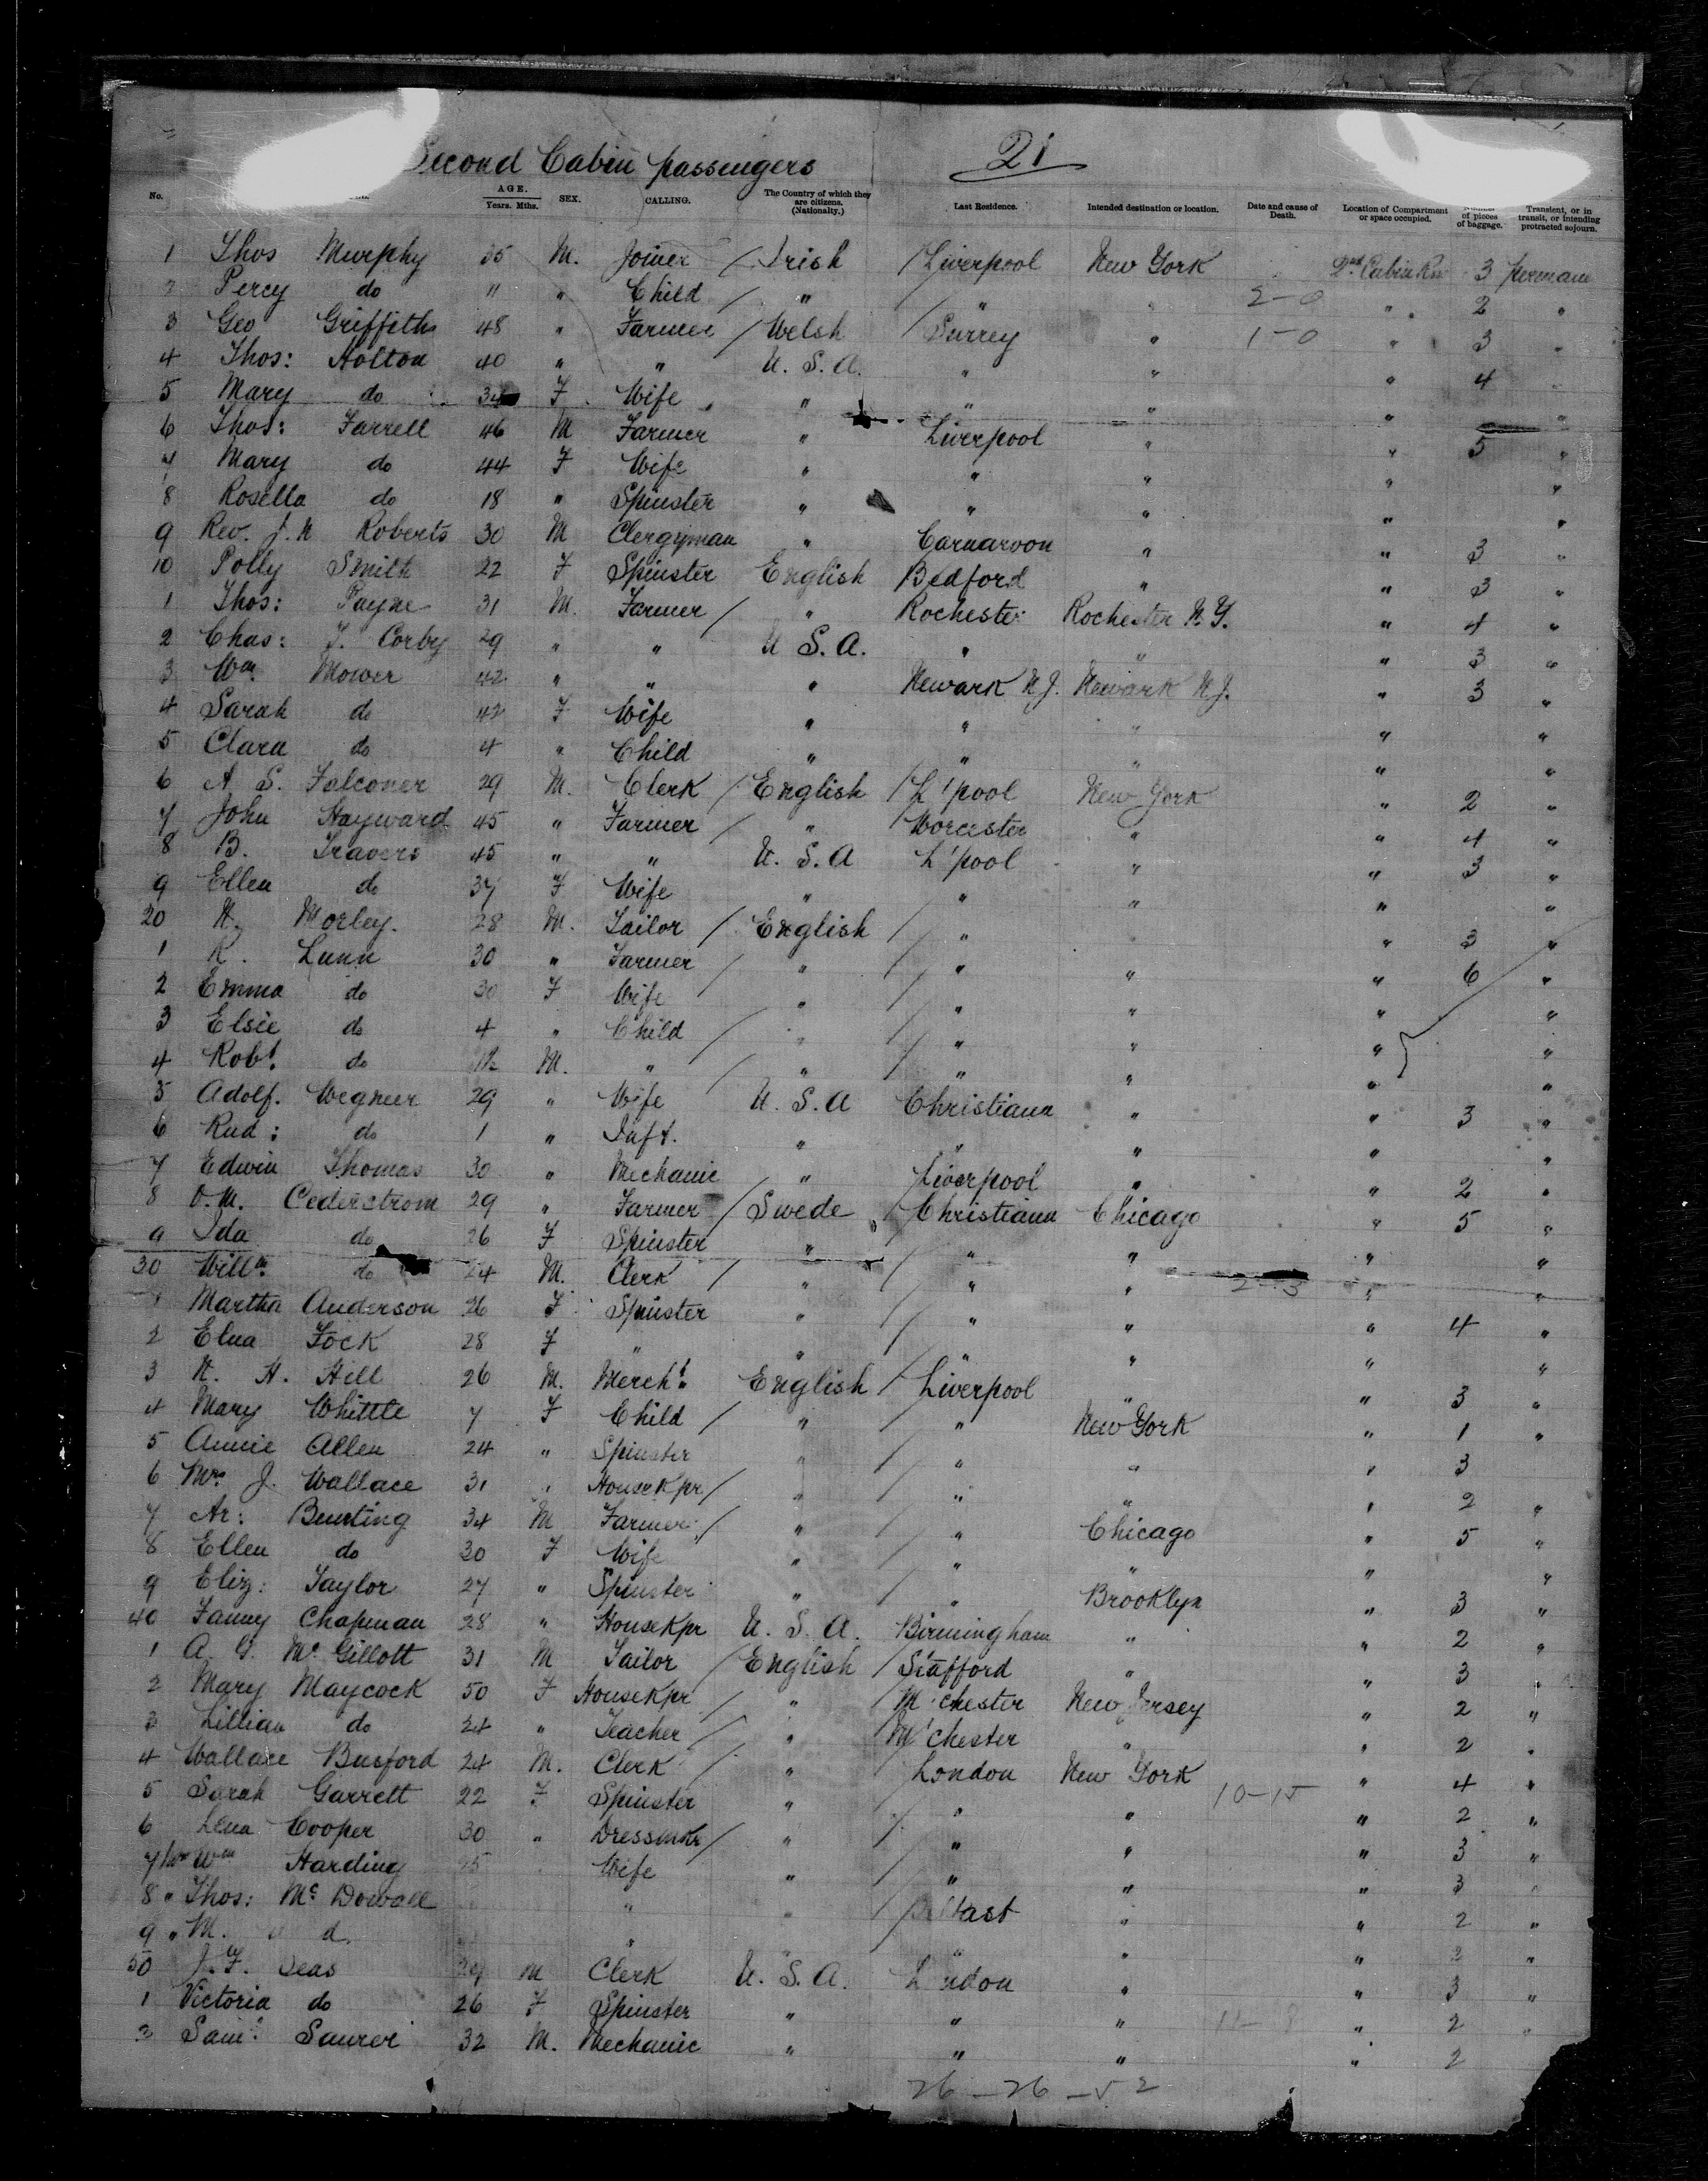 Second Cabin passengers 21
No. AGE. Years. Mths. SEX. CALLING. The Country of which they are citizens. (Nationality.) Last Residence. Intended destination or location. Date and cause of Death. Location of Compartment or space occupied. of pieces of baggage. Transient, or in transit, or intending protracted sojourn.
1 Thos Murphy 35 M. Joiner / Irish / Liverpool New York 2nd Cabin 3
2 Percy do 11 " Child / " " " 2-0 " 2 "
3 Geo Griffiths 48 " Farmer / Welsh / Surrey " 1-0 " 3 "
4 Thos: Holton 40 " " U. S. A. " " " 4
5 Mary do F Wife " " " " "
6 Thos: Farrell 46 M Farmer " Liverpool " " 5 "
7 Mary do 44 F Wife " " " " "
8 Rosella do 18 " Spinster " " " " "
9 Rev. J. N Roberts 30 M Clergyman " Carnarvon " " 3 "
10 Polly Smith 22 F Spinster English Bedford " " 3 "
1 Thos: Payne 31 M. Farmer / " Rochester Rochester N.Y. " 4 "
2 Chas: J. Corby 29 " " U S. A. " " " 3 "
3 Wm. Mower 42 " " " Newark N.J. Newark N.J. " 3 "
4 Sarah do 42 F Wife " " " " "
5 Clara do 4 " Child " " " " "
6 A S. Falconer 29 M. Clerk / English / L'pool New York " 2 "
7 John Hayward 45 " Farmer / " Worcester " " 4 "
8 B. Travers 45 " " U. S. A L'pool " " 3 "
9 Ellen do 37 F Wife " " " " "
20 H. Morley. 28 M. Tailor / English / " " " 3 "
1 R. Lunn 30 " Farmer / " / " " " 6 "
2 Emma do 30 F Wife / " / " " " "
3 Elsie do 4 " Child / " / " " " "
4 Robt. do M. " / " / " " " "
5 Adolf. Wegner 29 " Wife U. S. A Christiana " " 3 "
6 Rud: do 1 " Inft. " " " " "
7 Edwin Thomas 30 " Mechanic " Liverpool " " 2 "
8 O.M. Cederstrom 29 " Farmer / Swede / Christiana Chicago " 5 "
9 Ida do 26 F Spinster " / " " " "
30 Willm. do 24 M. Clerk / " / " " 2-3 " "
1 Martha Anderson 26 F Spinster " / " " " 4 "
2 Elna Fock 28 F " " / " " " "
3 H. H. Hill 26 M. Mercht. English / Liverpool " " 3 "
4 Mary Whittle 7 F Child / " / " New York " 1 "
5 Annie Allen 24 " Spinster " / " " " 3
6 Mrs J. Wallace 31 " Housekpr / " / " " " 2 "
7 Ar: Bunting 34 M Farmer / " / " Chicago " 5 "
8 Ellen do 30 F Wife " / " " " "
9 Eliz: Taylor 27 " Spinster " / " Brooklyn " 3 "
40 Fanny Chapman 28 " Housekpr U. S. A. Birmingham " " 2 "
1 A. G. McGillott 31 M Tailor / English / Stafford " " 3 "
2 Mary Maycock 50 F Housekpr / " / M'chester New Jersey " 2 "
3 Lillian do 24 " Teacher / " / M'chester " " 2 "
4 Wallace Busford 24 M. Clerk / " London New York " 4 "
5 Sarah Garrett 22 F Spinster " / " " 10-15 " 2 "
6 Lena Cooper 30 " Dressmkr / " / " " " 3 "
7 Mrs Wm Harding Wife " / " " " 3 "
8 " Thos: McDowall " " / " " 2 "
9 " M. " " " " 2 "
50 J. F. Deas 29 M Clerk U. S. A. London " " 3 "
1 Victoria do 26 F Spinster " " " " 2 "
2 Saml. 32 M. Mechanic " " " " 2
26-26-52